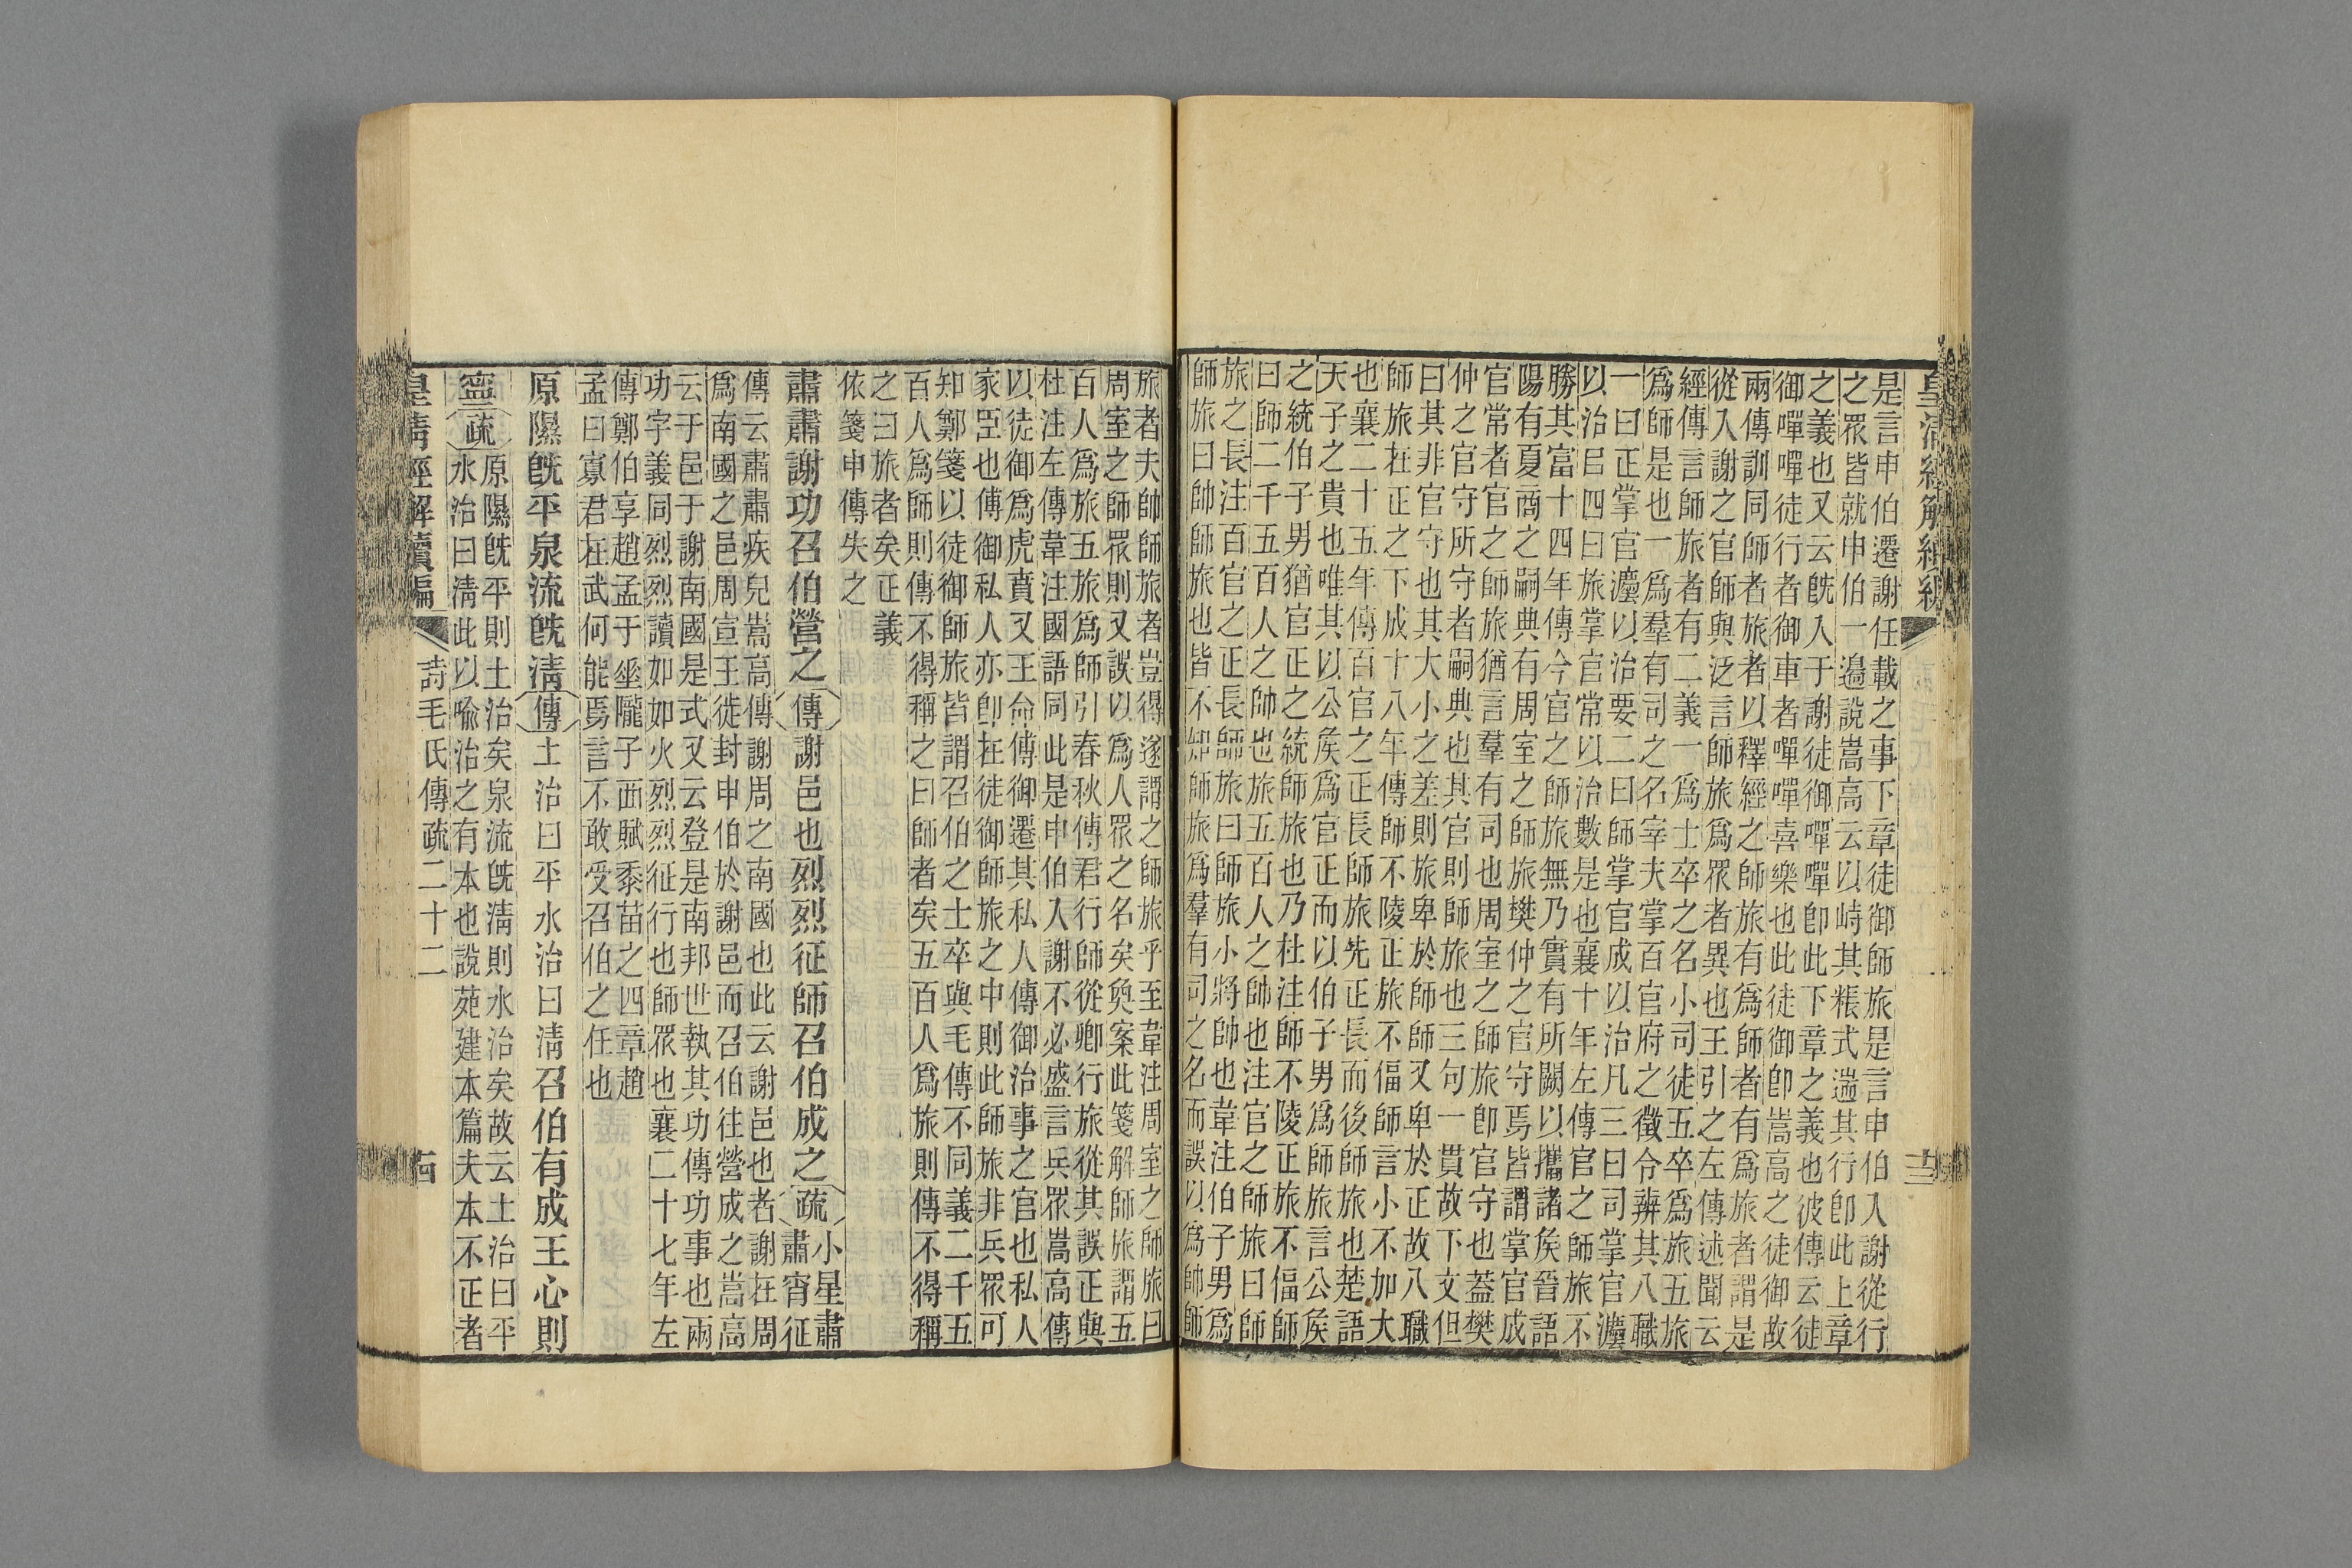 是言申伯遷謝任載之事下章徒御師旅是言申伯入謝從行
之眾皆就申伯一邉說嵩高云以峙其粻式遄其行卽此上章
之義也又云旣入于謝徒御嘽嘽卽此下章之義也彼傳云徒
御嘽嘽徒行者御車者嘽嘽喜樂也此徒御卽嵩高之徒御故
兩傳訓同師者旅者以釋經之師旅有爲師者有爲旅者謂是
從入謝之官師與泛言師旅爲眾者異也王引之左傳述聞云
經傳言師旅者有二義一爲士卒之名小司徒五卒爲旅五旅
爲師是也一爲羣有司之名宰夫掌百官府之徵令辨其八職
一曰正掌官灋以治要二曰師掌官成以治凡三曰司掌官灋
以治目四曰旅掌官常以治數是也襄十年左傳官之師旅不
勝其富十四年傳今官之師旅無乃實有所闕以攜諸矦晉語
陽有夏商之嗣典有周室之師旅樊仲之官守焉皆謂掌官成
官常者官之師旅猶言羣有司也周室之師旅卽官守也葢樊
仲之官守所守者嗣典也其官則師旅也三句一貫故下文但
曰其非官守也其大小之差則旅卑於師師又卑於正故八職
師旅在正之下成十八年傳師不陵正旅不偪師言小不加大
也襄二十五年傳百官之正長師旅先正長而後師旅也楚語
天子之貴也唯其以公矦爲官正而以伯子男爲師旅言公矦
之統伯子男猶官正之統師旅也乃杜注師不陵正旅不偪師
曰師二千五百人之帥也旅五百人之帥也注官之師旅曰師
旅之長注百官之正長師旅曰師旅小將帥也韋注伯子男爲
師旅曰帥師旅也皆不知師旅爲羣有司之名而誤以爲帥師
旅者夫帥師旅者豈得遂謂之師旅乎至韋注周室之師旅曰
周室之師眾則又誤以爲人眾之名矣奐案此箋解師旅謂五
百人爲旅五旅爲師引春秋傳君行師從卿行旅從其誤正與
杜注左傳韋注國語同此是申伯入謝不必盛言兵眾嵩高傳
以徒御爲虎賁又王命傅御遷其私人傳御治事之官也私人
家臣也傅御私人亦卽在徒御師旅之中則此師旅非兵眾可
知鄭箋以徒御師旅皆謂召伯之士卒與毛傳不同義二千五
百人爲師則傳不得稱之曰師者矣五百人爲旅則傳不得稱
之曰旅者矣正義
依箋申傳失之
肅肅謝功召伯營之傳謝邑也烈烈征師召伯成之疏小星肅
肅宵征
傳云肅肅疾皃嵩高傳謝周之南國也此云謝邑也者謝在周
爲南國之邑周宣王徙封申伯於謝邑而召伯往營成之嵩高
云于邑于謝南國是式又云登是南邦世執其功傳功事也兩
功字義同烈烈讀如如火烈烈征行也師眾也襄二十七年左
傳鄭伯享趙孟于垂隴子西賦黍苗之四章趙
孟曰寡君在武何能焉言不敢受召伯之任也
原隰旣平泉流旣淸傳土治曰平水治曰淸召伯有成王心則
寍疏原隰旣平則土治矣泉流旣淸則水治矣故云土治曰平
水治曰淸此以喻治之有本也說苑建本篇夫本不正者
皇淸經解續編
詩毛氏傳疏二十二